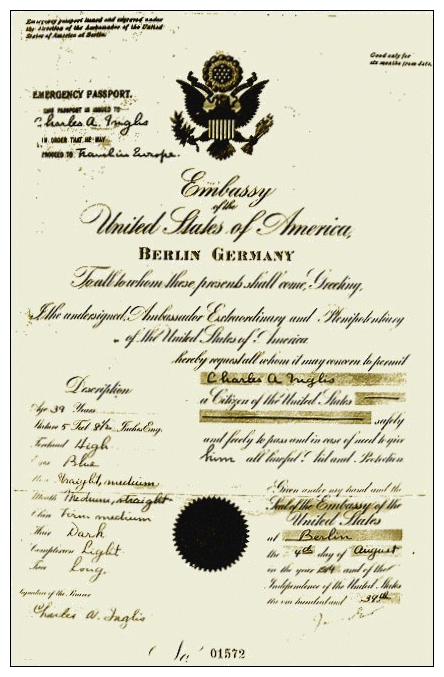 Emergency passport issued and signed under
the direction of the Ambassador of the United
States of America at Berlin.
Good only for
six months from date.
EMERGENCY PASSPORT.
THIS PASSPORT IS ISSUED TO
Charles A. Inglis
IN ORDER THAT HE MAY
PROCEED TO Travel in Europe.
Embassy
of the
United States of America,
BERLIN GERMANY
To all to whom these presents shall come, Greeting.
I the undersigned, Ambassador Extraordinary and Plenipotentiary
of the United States of America
hereby request all whom it may concern to permit
Charles A Inglis
a Citizen of the United States
safely
and freely to pass and in case of need to give
him all lawful Aid and Protection
Description
Age 39 Years
Stature 5 Feet 8½ Inches Eng.
Forehead High
Eyes Blue
Nose Straight, medium
Mouth Medium, straight
Chin Firm, medium
Hair Dark
Complexion Light
Face Long.
Signature of the Bearer
Charles A. Inglis
Given under my hand and the
Seal of the Embassy of the
United States
at Berlin
the 4th day of August
in the year and of the
Independence of the United States
the one hundred and 39th
No 01572